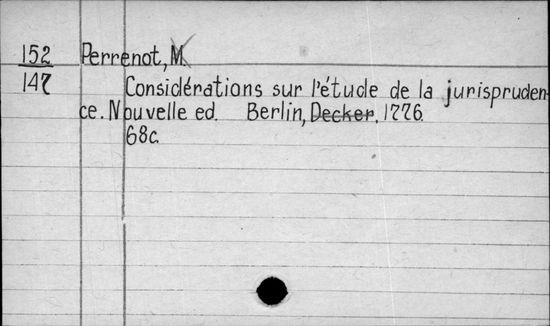 152 Perrenot, M.
147 Considérations sur l'étude de la jurispruden-
ce. Nouvelle ed. Berlin, Decker, 1776.
68c.